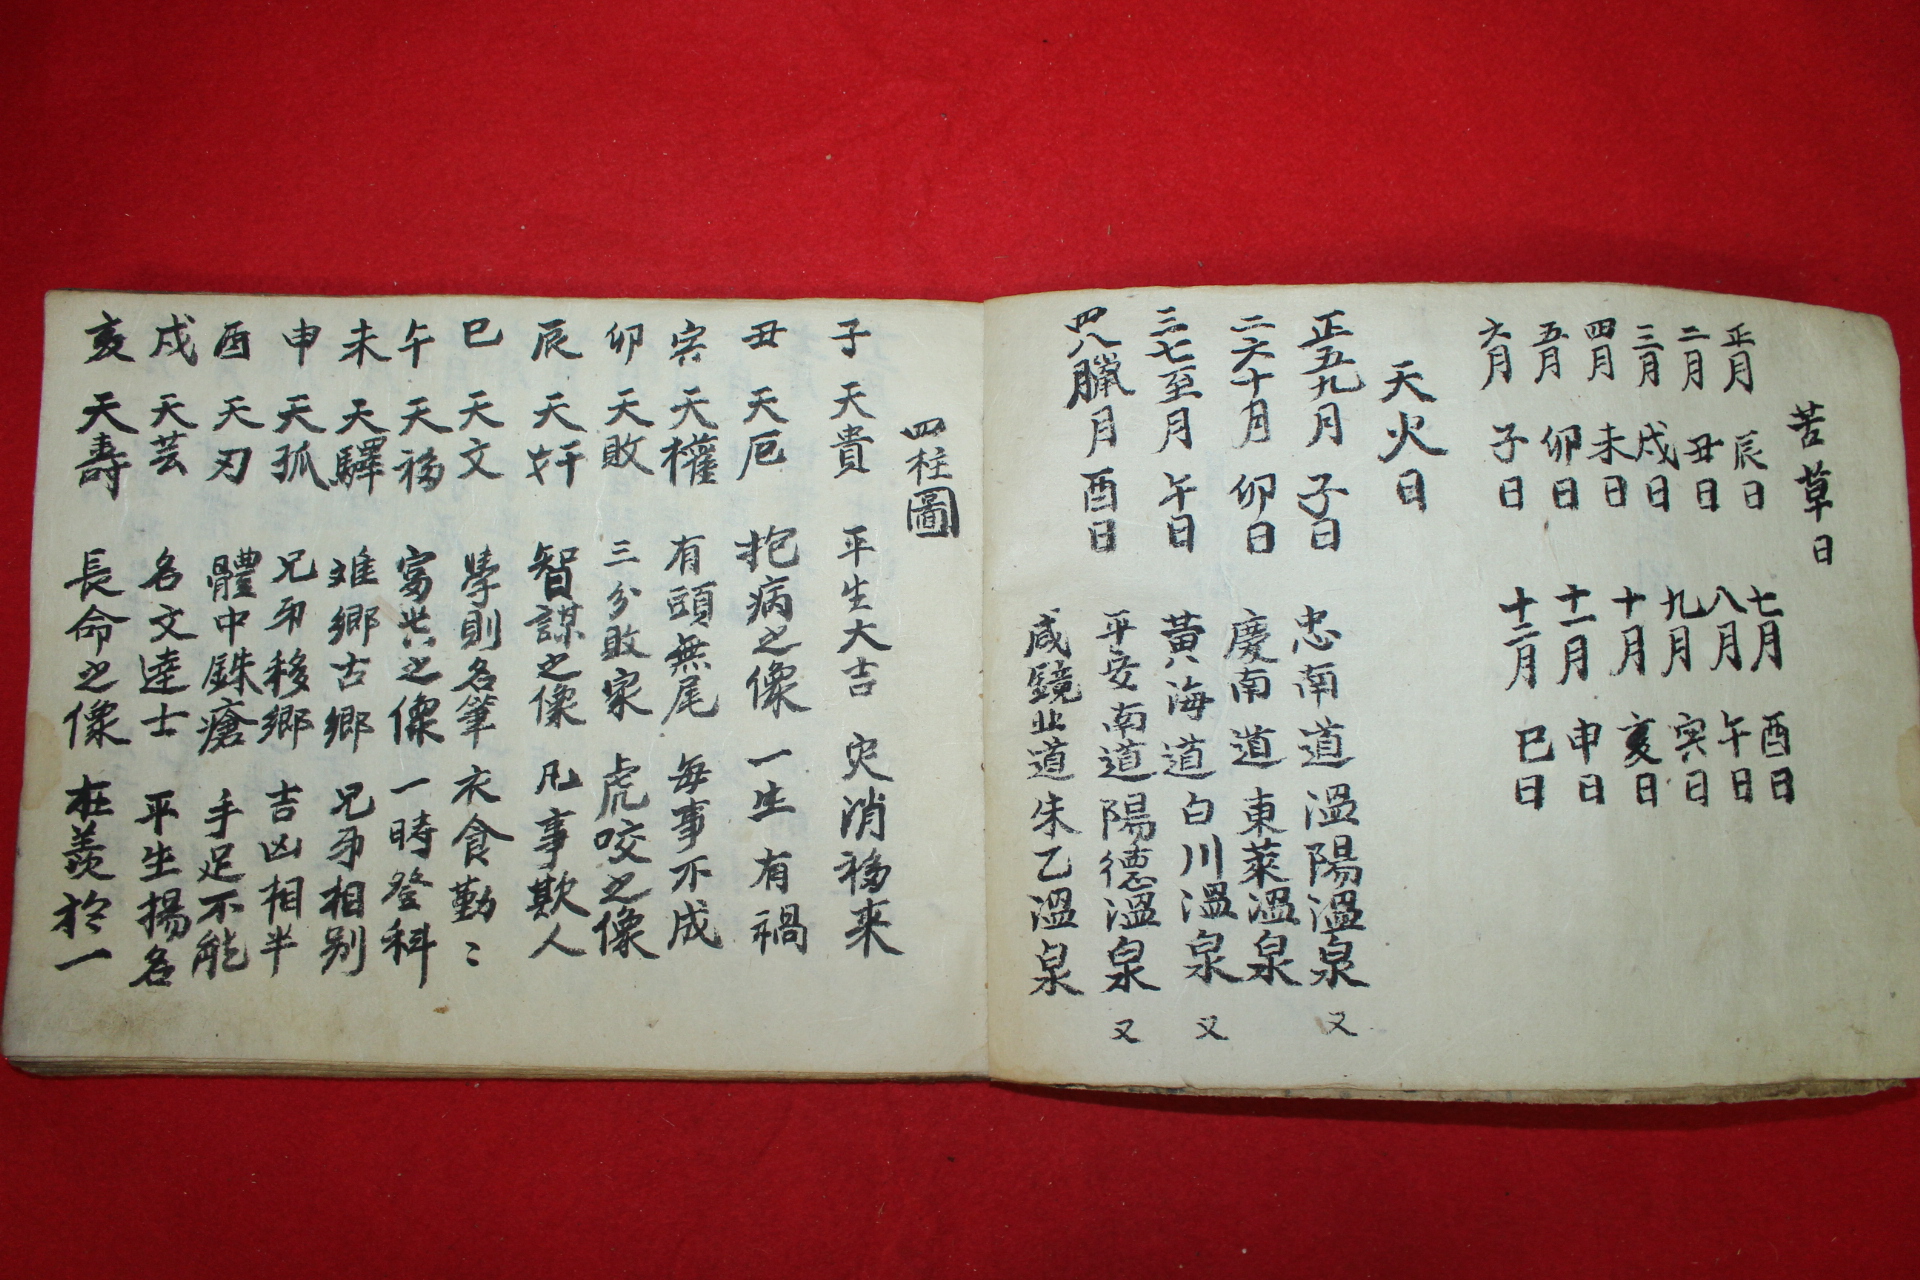 苦草日
正月 辰日 七月 酉日
二月 丑日 八月 午日
三月 戌日 九月 寅日
四月 未日 十月 亥日
五月 卯日 十一月 申日
六月 子日 十二月 巳日
天火日
正五九月 子日 忠南道 溫陽溫泉 又
二六十月 卯日 慶南道 東萊溫泉
三七至月 午日 黃海道 白川溫泉 又
四八臘月 酉日 平安南道 陽德溫泉 又
咸鏡北道 朱乙溫泉
四柱圖
子 天貴 平生大吉 灾消福来
丑 天厄 抱病之像 一生有禍
寅 天權 有頭無尾 每事不成
卯 天敗 三分敗家 虎咬之像
辰 天奸 智謀之像 凡事欺人
巳 天文 學則名筆 衣食勤〻
午 天福 富貴之像 一時登科
未 天驛 难鄉古鄉 兄弟相别
申 天孤 兄弟移鄉 吉凶相半
酉 天刃 體中銖瘡 手足不能
戌 天芸 名文達士 平生揚名
亥 天壽 長命之像 在羨於一